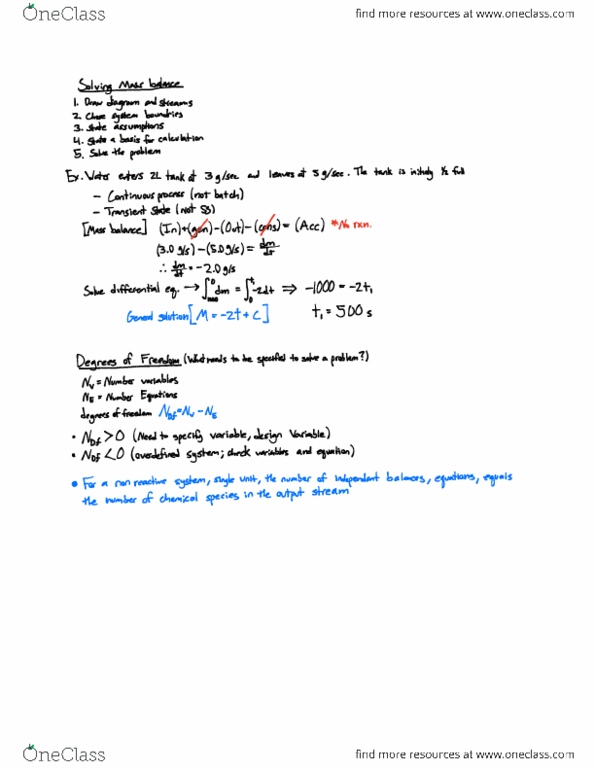 OneClass
find more resources at www.oneclass.com
Solving Mass balance
1. Draw diagram and streams
2. Chose system boundries
3. State assumptions
4. State a basis for calculation
5. Solve the problem
Ex. Water enters 2L tank at 3 g/sec and leaves at 5 g/sec. The tank is initialy 1/2 full
– Continuous process (not batch)
– Transient state (not SS)
[Mass balance] (In)+(gen)-(Out)-(cons)=(Acc) *No rxn.
(3.0 g/s)-(5.0 g/s) = dm/dt
∴ dm/dt = -2.0 g/s
Solve differential eq. → ∫₁₀₀₀⁰ dm = ∫₀ᵗ -2dt ⇒ -1000 = -2t₁
General solution [M = -2t + C] t₁ = 500 s
Degrees of Freedom (What needs to be specified to solve a problem?)
Nᵥ = Number variables
N_E = Number Equations
degrees of freedom N_Df = Nᵥ - N_E
• N_Df > 0 (Need to specify variable, design Variable)
• N_Df < 0 (overdefined system; check variables and equation)
• For a non reactive system, single unit, the number of independent balances, equations, equals
the number of chemical species in the output stream
OneClass
find more resources at www.oneclass.com